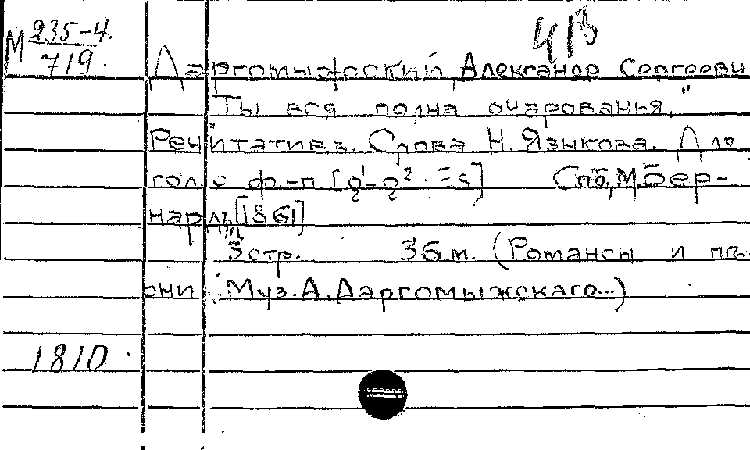 М 235-4.
719.
413
Даргомыжский, Александр Сергееви
"Ты вся полна очарованья."
Речитативъ. Слова Н. Языкова. Для
голоса ф.-п. Спб, М. Бер-
нардъ [1861]
3 стр. 36 м. (Романсы и пѣ-
сни. Муз. А. Даргомыжскаго...)
1810